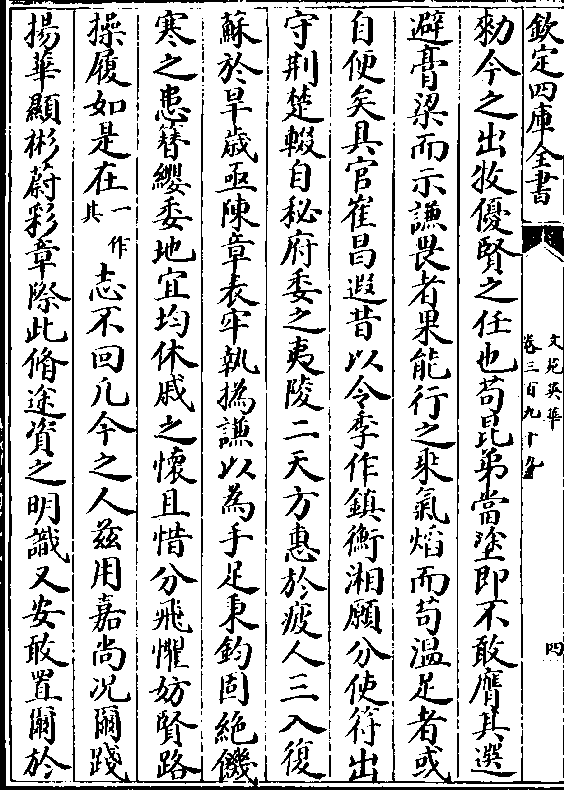 欽定四庫全書
文苑英華
卷三百九十
四
勑今之出牧優賢之任也苟昆弟當塗即不敢膺其選
避膏粱而示謙畏者果能行之乘氣焰而苟溫足者或
自便矣具官崔昌遐昔以令季作鎮衡湘願分使符出
守荆楚輟自秘府委之夷陵二天方惠於疲人三入復
蘇於旱歳亟陳章表牢執撝謙以為手足秉鈞固絶饑
寒之患簪纓委地宜均休戚之懷且惜分飛懼妨賢路
操履如是在一作其志不回凡今之人兹用嘉尚况爾踐
揚華顯彬蔚彩章際此脩途資之明識又安敢置爾於